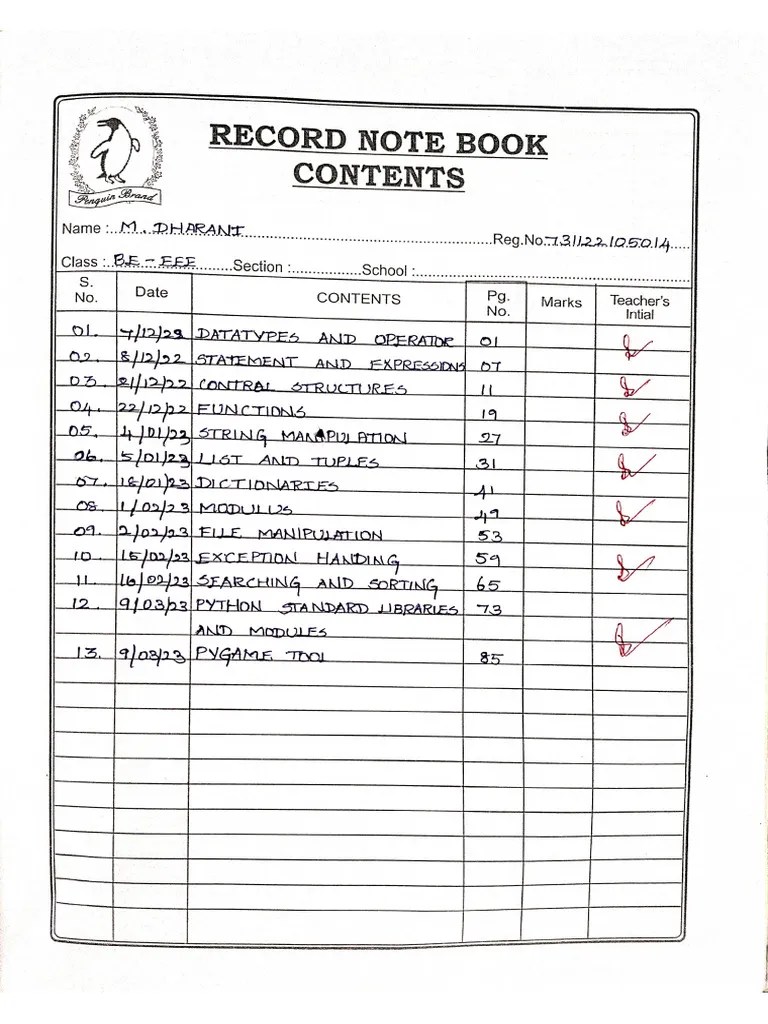 Penguin Brand
RECORD NOTE BOOK
CONTENTS
Name : M. DHARANI
Reg.No. 731122105014
Class : BE - EEE Section : School :
S. No. Date CONTENTS Pg. No. Marks Teacher's Intial
01. 7/12/22 DATATYPES AND OPERATOR 01
02. 8/12/22 STATEMENT AND EXPRESSIONS 07
03. 21/12/22 CONTRAL STRUCTURES 11
04. 22/12/22 FUNCTIONS 19
05. 4/01/23 STRING MANAPULATION 27
06. 5/01/23 LIST AND TUPLES 31
07. 18/01/23 DICTIONARIES 41
08. 1/02/23 MODULUS 49
09. 2/02/23 FILE MANIPULATION 53
10. 15/02/23 EXCEPTION HANDING 59
11. 16/02/23 SEARCHING AND SORTING 65
12. 9/03/23 PYTHON STANDARD LIBRARIES 73
AND MODULES
13. 9/03/23 PYGAME TOOL 85